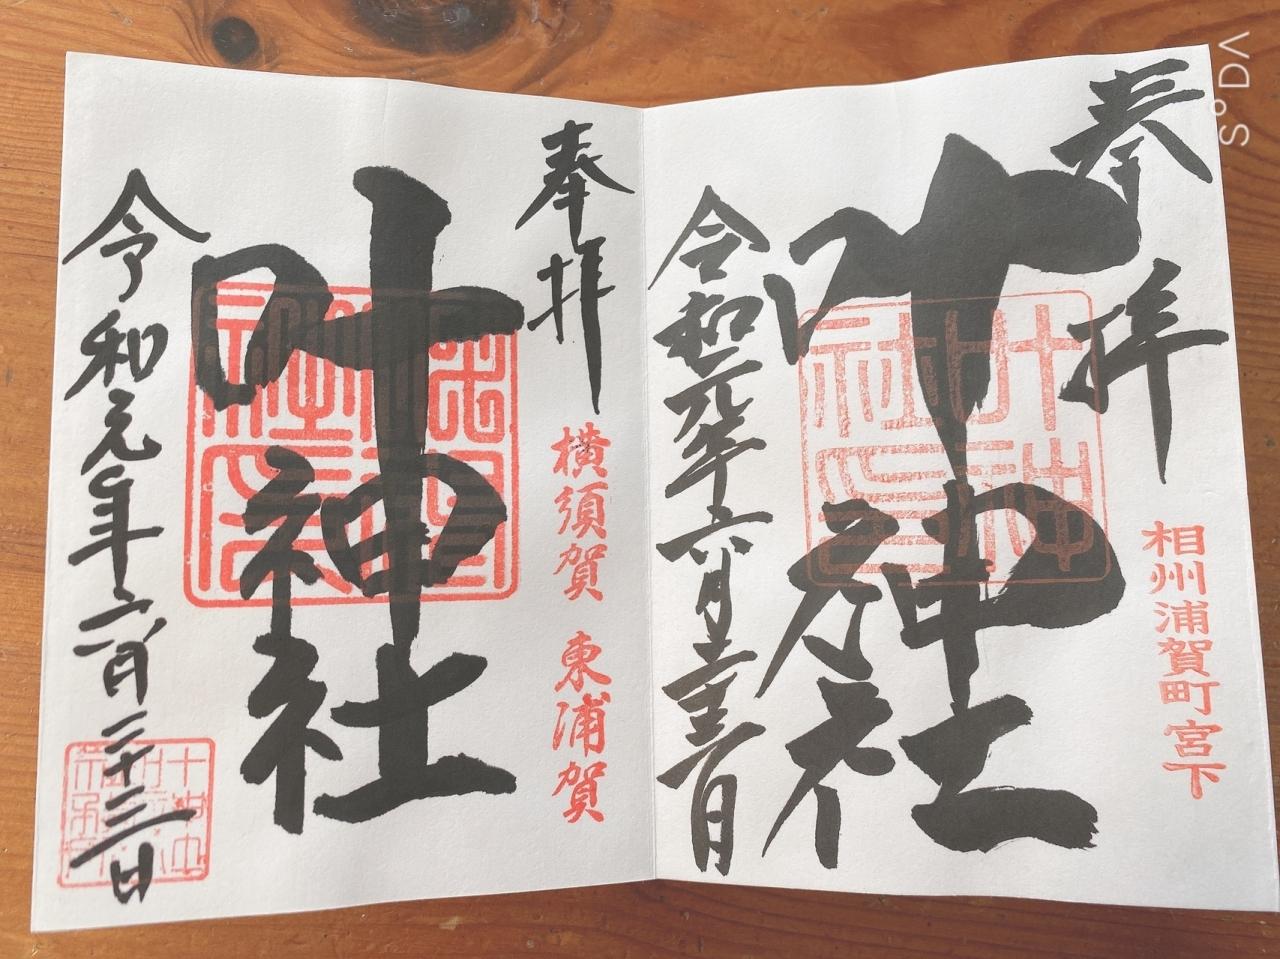 奉拝
相州浦賀町宮下
叶神社
令和元年六月二十三日
奉拝
横須賀 東浦賀
叶神社
令和元年六月二十三日